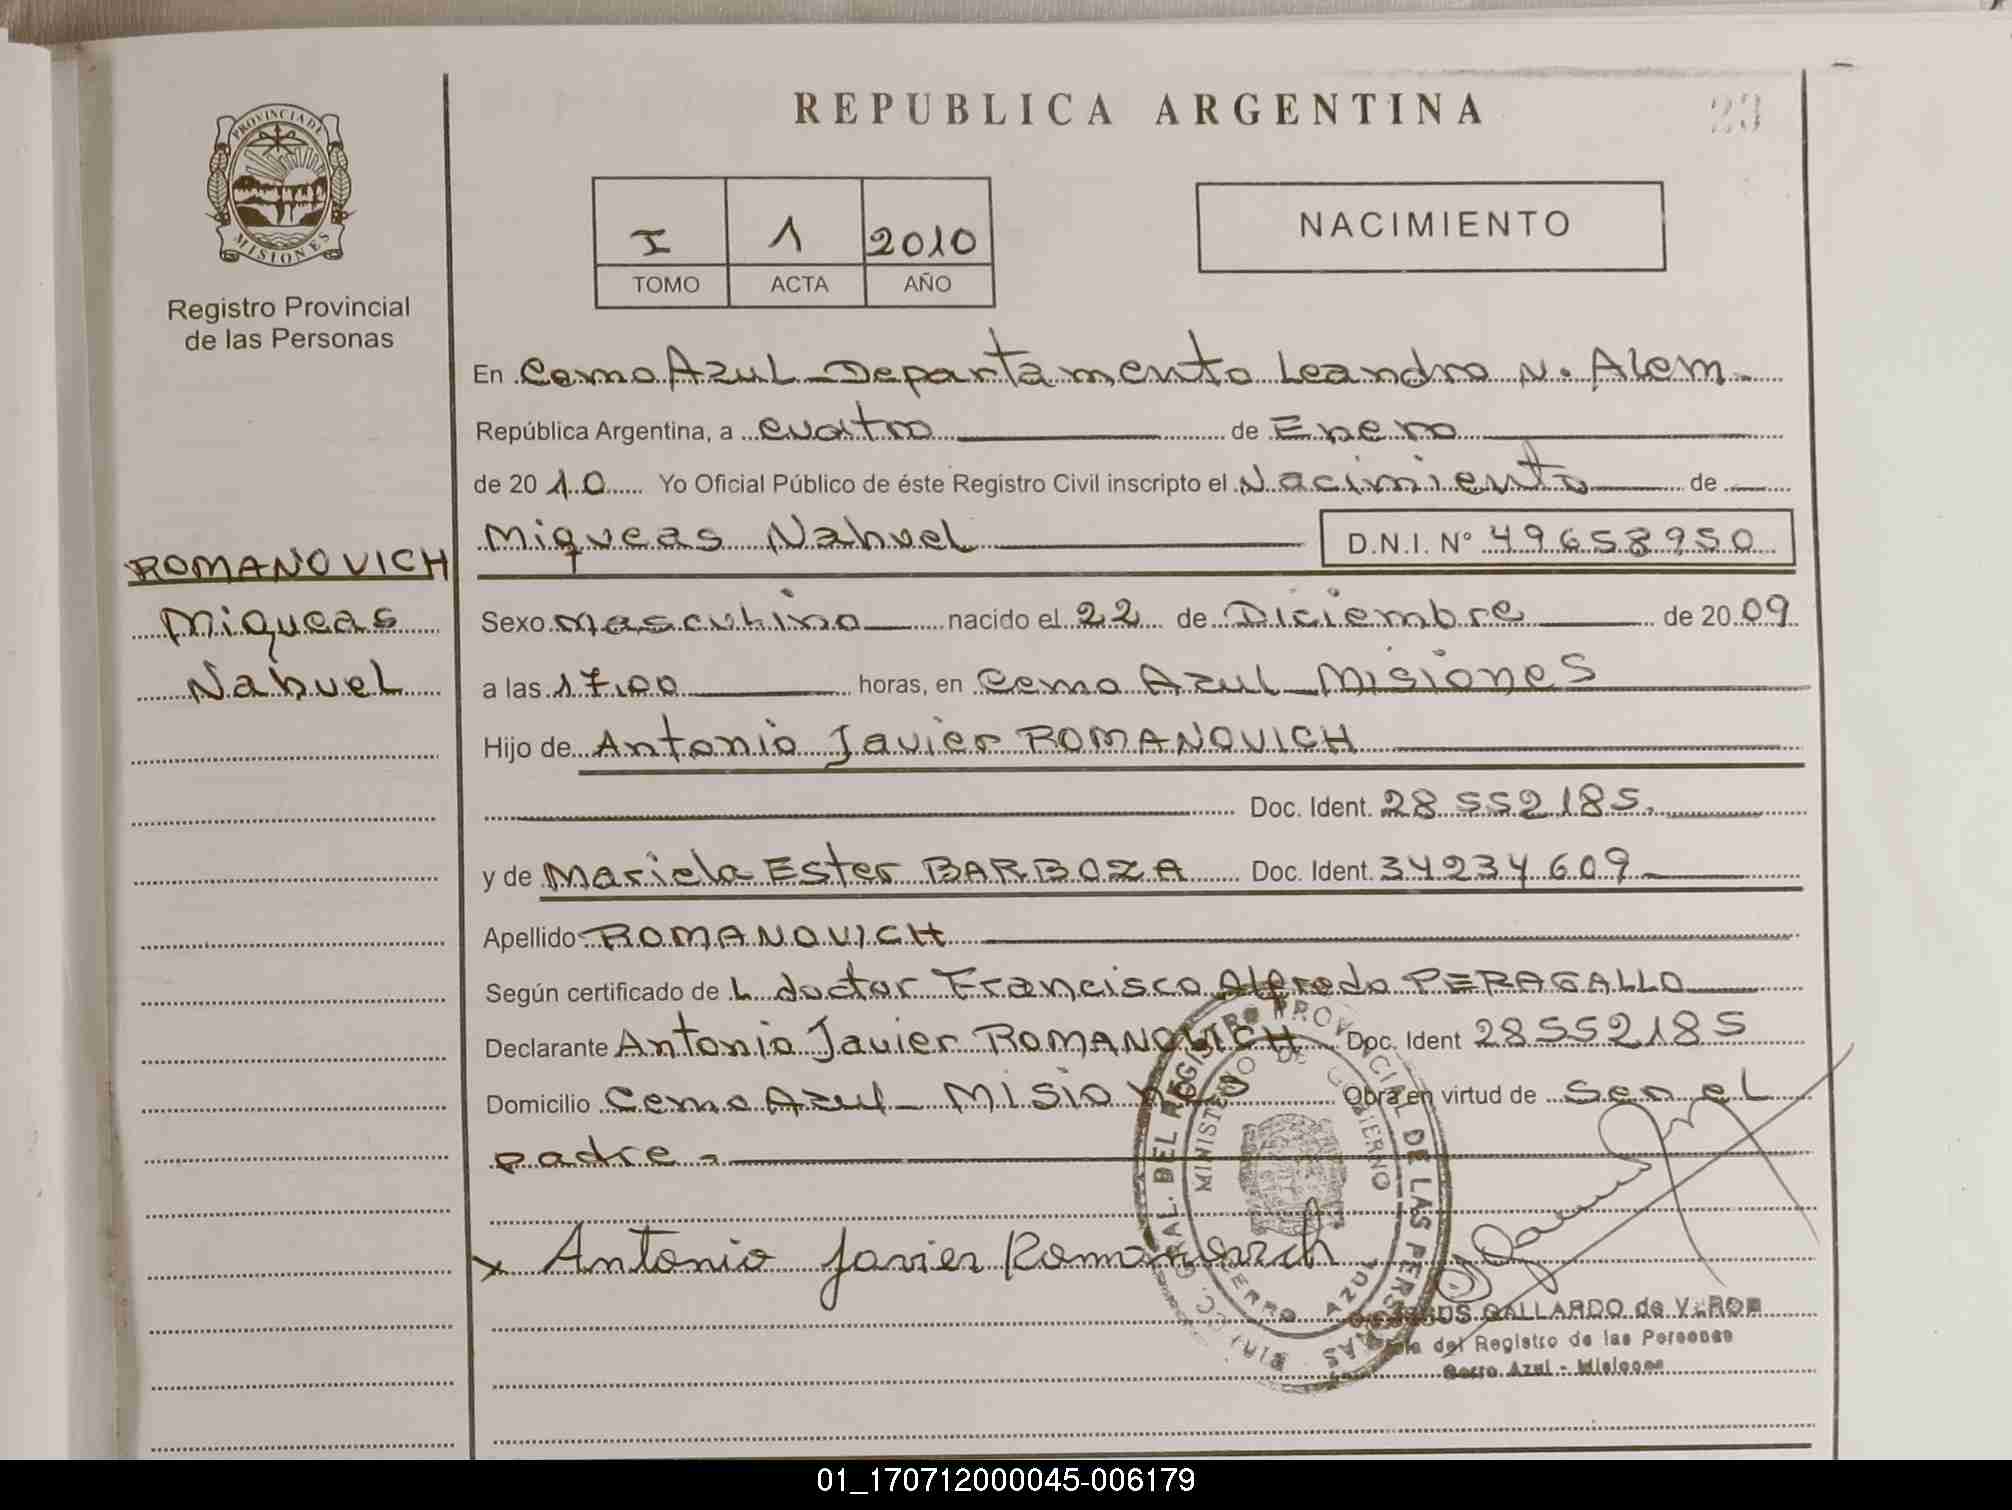 REPUBLICA ARGENTINA
23
PROVINCIA DE
MISIONES
Registro Provincial
de las Personas
I 1 2010
TOMO ACTA AÑO
NACIMIENTO
En Cerro Azul - Departamento Leandro N. Alem -
República Argentina, a cuatro de Enero
de 2010 Yo Oficial Público de éste Registro Civil inscripto el Nacimiento de
Miqueas Nahuel D.N.I. N° 49658950
ROMANOVICH
Miqueas
Nahuel
Sexo masculino nacido el 22 de Diciembre de 2009
a las 17,00 horas, en Cerro Azul - Misiones
Hijo de Antonio Javier ROMANOVICH
Doc. Ident. 28552185.
y de Mariela Ester BARBOZA Doc. Ident. 34234609
Apellido ROMANOVICH
Según certificado de L doctor Francisco Alfredo PERAGALLO
Declarante Antonio Javier ROMANOVICH Doc. Ident 28552185
Domicilio Cerro Azul - Misiones Obra en virtud de ser el
padre -
x Antonio Javier Romanovich
GRAL. DEL REGISTRO PROVINCIAL DE LAS PERSONAS
MINISTERIO DE GOBIERNO
CERRO AZUL
GALLARDO de
del Registro de las Personas
Cerro Azul - Misiones
01_170712000045-006179